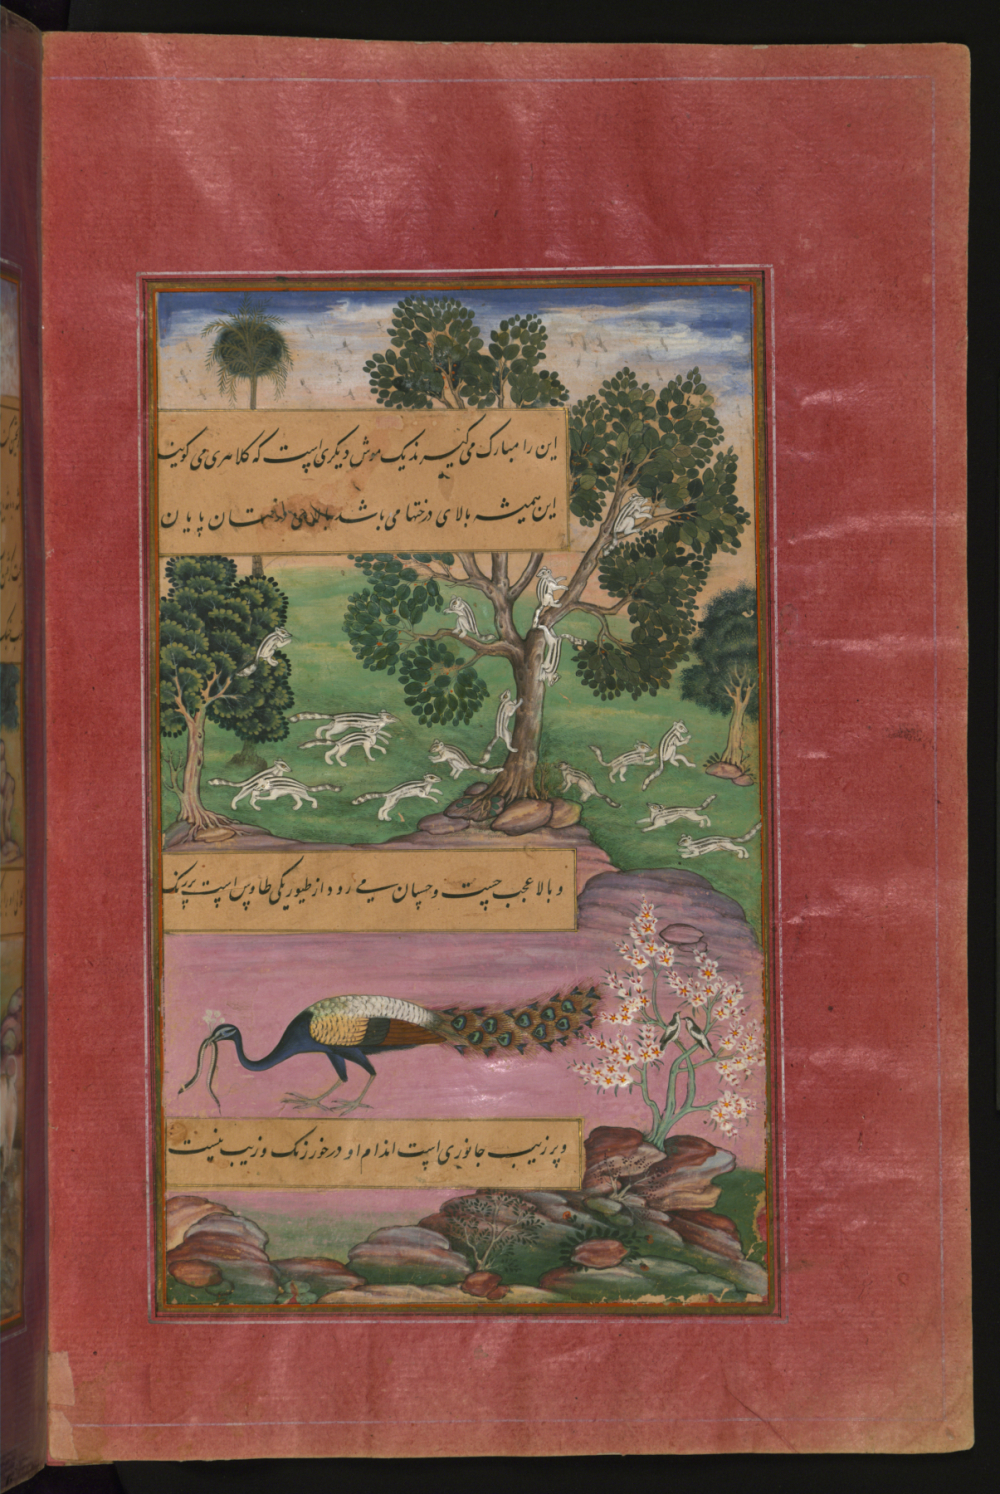 این را مبارک می گیرند یک موش دیکری است که کلاهری می گویند
این همیشه بالای درختها می باشد بالای درختان پایان
و بالا عجب چست و چسپان می رود از طیور یکی طاوس است پررنک
و پر زیب جانوری است اندام او درخور زنک و زیب نیست